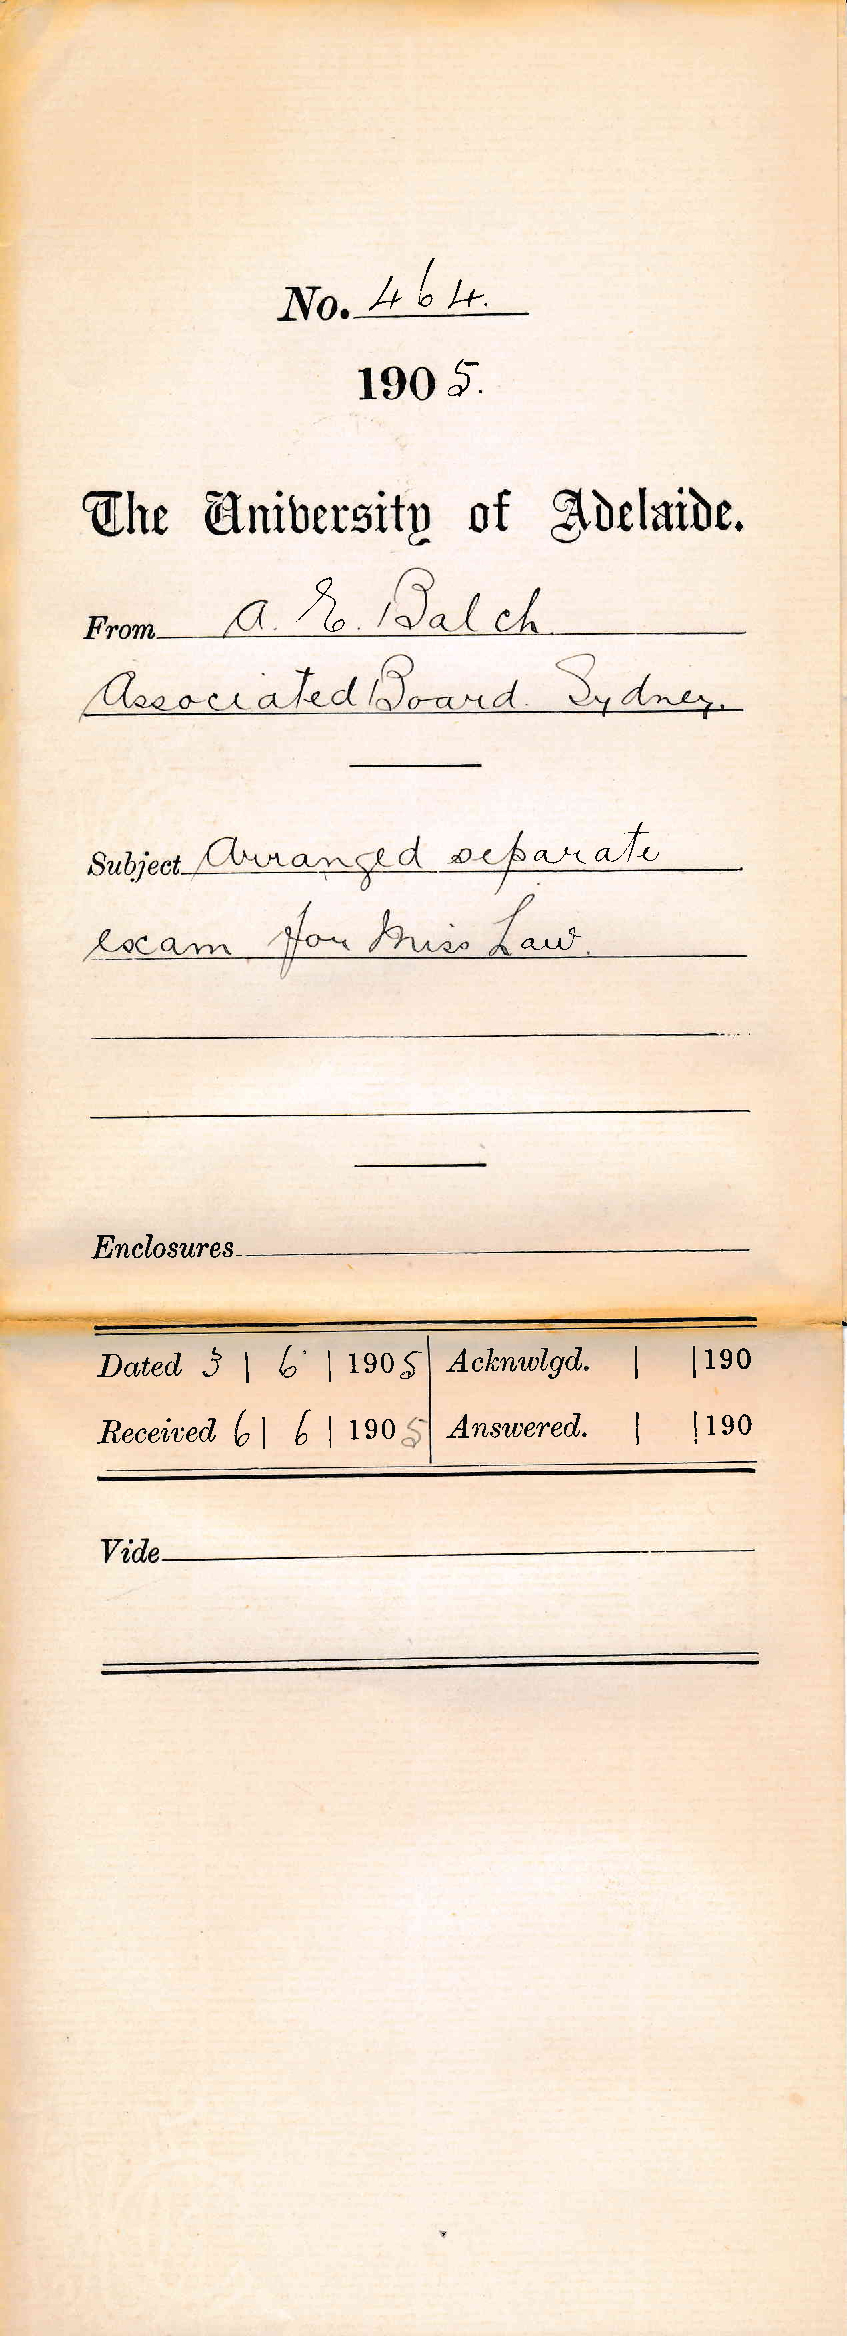 No. 464.
1905.
The University of Adelaide.
From A. E. Balch
Associated Board. Sydney.
Subject Arranged separate
exam for Miss Law.
Enclosures
Dated 3 | 6 | 1905 Acknwlgd. | | 190
Received 6 | 6 | 1905 Answered. | | 190
Vide